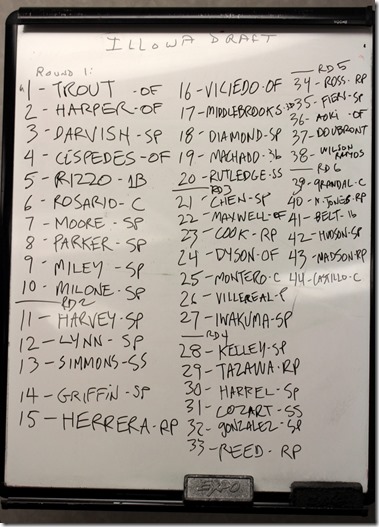 ILLOWA DRAFT
ROUND 1:
1 - TROUT - OF
2 - HARPER - OF
3 - DARVISH - SP
4 - CESPEDES - OF
5 - RIZZO - 1B
6 - ROSARIO - C
7 - MOORE - SP
8 - PARKER - SP
9 - MILEY - SP
10 - MILONE - SP
RD 2
11 - HARVEY - SP
12 - LYNN - SP
13 - SIMMONS - SS
14 - GRIFFIN - SP
15 - HERRERA - RP
16 - VICIEDO - OF
17 - MIDDLEBROOKS - 3B
18 - DIAMOND - SP
19 - MACHADO - 3B
20 - RUTLEDGE - SS
RD3
21 - CHEN - SP
22 - MAXWELL - OF
23 - COOK - RP
24 - DYSON - OF
25 - MONTERO - C
26 - VILLEREAL - P
27 - IWAKUMA - SP
RD4
28 - KELLEY - SP
29 - TAZAWA - RP
30 - HARREL - SP
31 - COZART - SS
32 - GONZALEZ - SP
33 - REED - RP
RD 5
34 - ROSS - RP
35 - FIERS - SP
36 - AOKI - OF
37 - DOUBRONT
38 - WILSON RAMOS
RD 6
39 - GRANDAL - C
40 - N. JONES - RP
41 - BELT - 1B
42 - HUDSON - SP
43 - MADSON - RP
44 - CASTILLO - C
EXPO